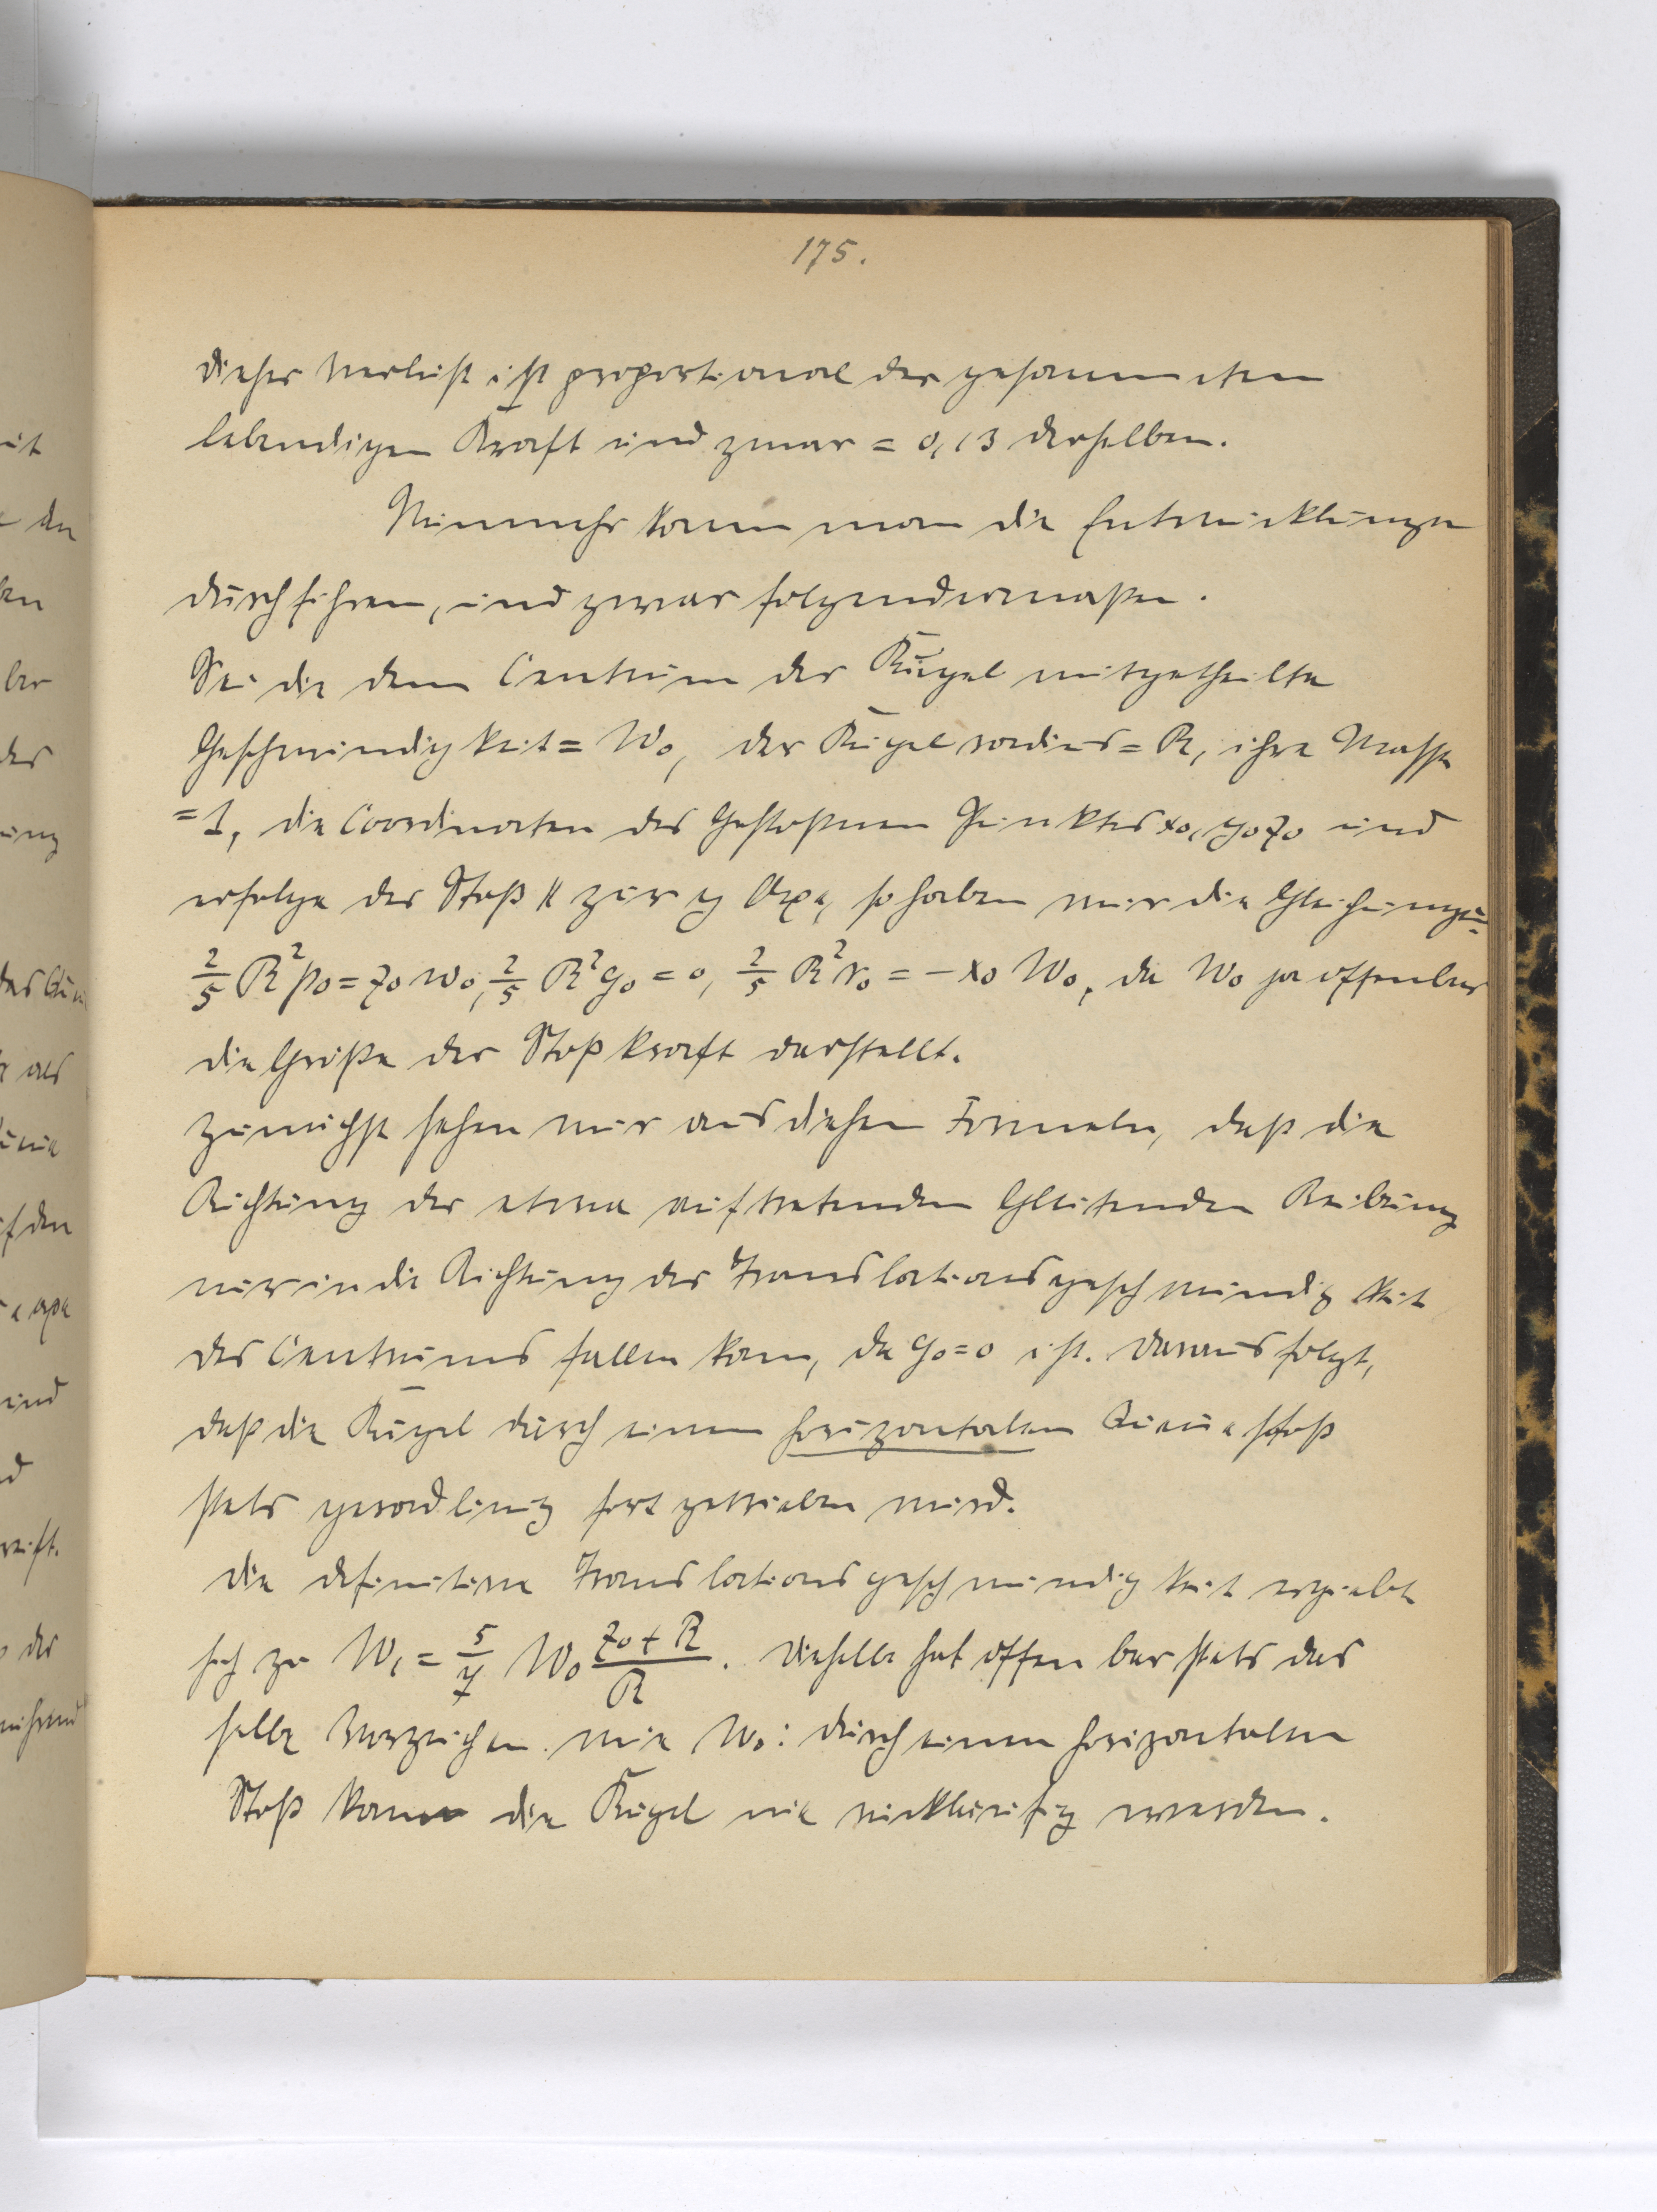 175.
dieser Verlust ist proportional der gesammten
lebendigen Kraft und zwar = 0,13 derselben.
Nunmehr kann man die Entwicklungen
durchführen, und zwar folgendermaßen.
Sei die dem Centrum der Kugel mitgetheilte
Geschwindigkeit = W₀, der Kugelradius = R, ihre Masse
= 1, die Coordinaten des Gestoßenen Punktes x₀, y₀ z₀ und
erfolge der Stoß || zur y Axe, so haben wir die Gleichungen:
2/5 R² p₀ = z₀ w₀, 2/5 R² q₀ = 0, 2/5 R² r₀ = - x₀ W₀, da W₀ ja offenbar
die Größe der Stoßkraft darstellt.
Zunächst sehen wir aus diesen Formeln, daß die
Richtung der etwa auftretenden Gleitenden Reibung
nur in die Richtung der Translationsgeschwindigkeit
des Centrums fallen kann, da q₀ = 0 ist. Daraus folgt,
daß die Kugel durch einen horizontalen Queuestoß
stets geradlinig fortgetrieben wird.
Die definitive Translationsgeschwindigkeit ergiebt
sich zu W₁ = 5/7 W₀ (z₀ + R)/R. Dieselbe hat offenbar stets das
selbe Vorzeichen wie W₀: durch einen horizontalen
Stoß kann die Kugel nie rückläufig werden.